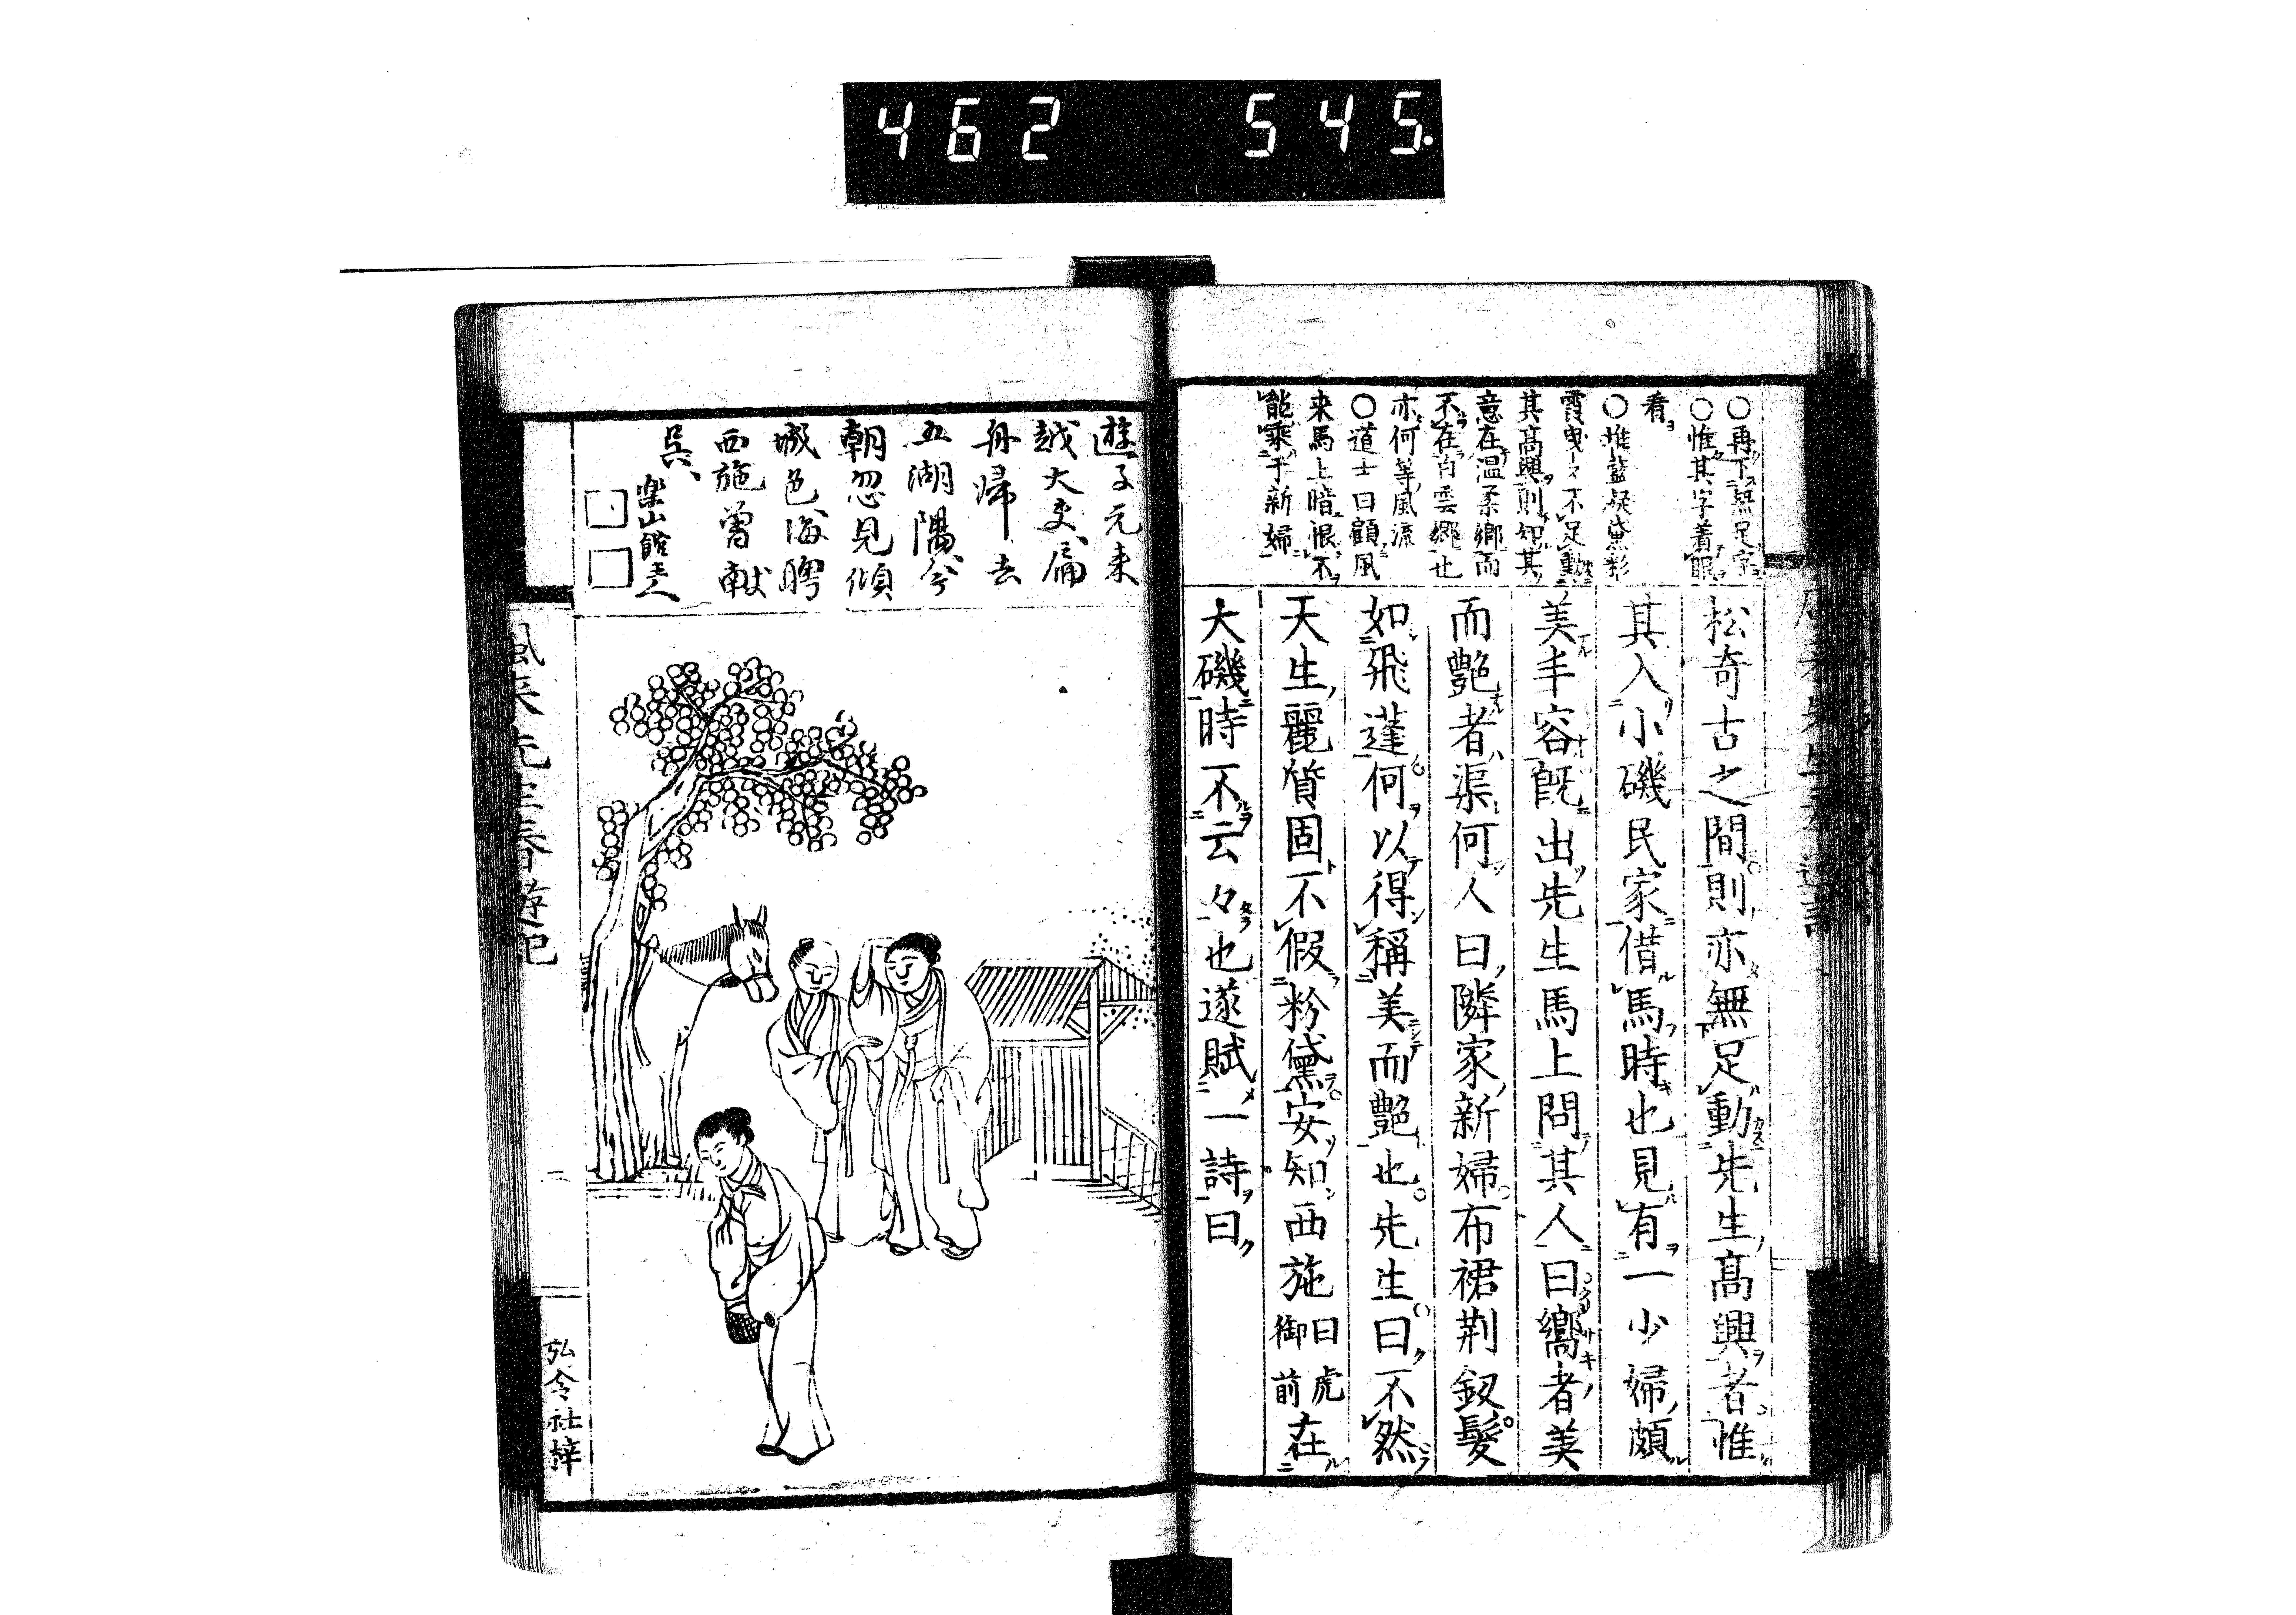 462 545.
○再下無足字
○惟其字着眼
看
○堆藍凝黛彩
霞曳々不足動
其高興則知其
意在温柔鄉而
不在白雲鄉也
亦何等風流
○道士曰顧風
来馬上暗恨不
能乘于新婦
松奇古之間則亦無足動先生高興者惟
其入小磯民家借馬時也見有一少婦頗
美手容既出先生馬上問其人曰嚮者美
而艷者渠何人曰隣家新婦布裙荆釵髮
如飛蓬何以得稱美而艷也先生曰不然
天生麗質固不假粉黛安知西施
曰虎
御前
在
大磯時不云々也遂賦一詩曰
遊子元来
越大夫扁
舟帰去
五湖隅今
朝忽見傾
城色悔聘
西施曾献
呉
楽山館主人
風来先生春遊記
弘令社梓